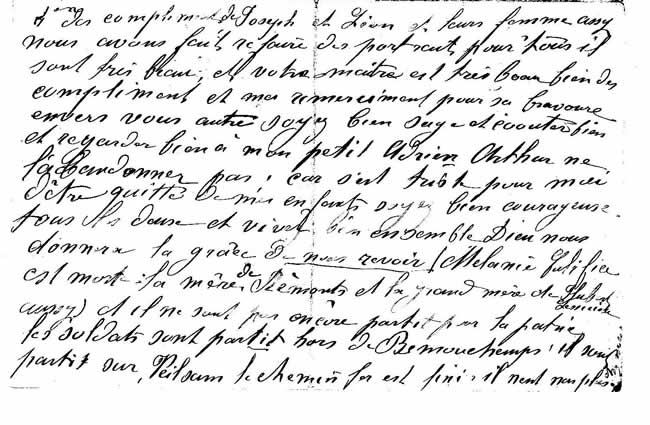 des compliment de Joseph et Léon et leurs femme aussy
nous avons fait refaire des portraits pour tous il
sont très beau, et votre maitre est très beau bien des
compliment et mes remerciment pour sa bravoure
envers vous autre soyez bien sage et écouter bien
et regarder bien à mon petit Adrien Arthur ne
l'abandonner pas, car s'est triste pour moi
d'être quitté de mes enfants soyez bien courageuse
tous les deux et vivez bien ensemble Dieu nous
donnera la grâce de nous revoir (Mélanie
est morte : la mère de Rémonts et la grand mère de
aussy) et il ne sont pas encôre partit pour la patrie
les soldats sont partit hors de Remouchamps : il sont
partit sur, Veilsam le chemin fer est fini : il